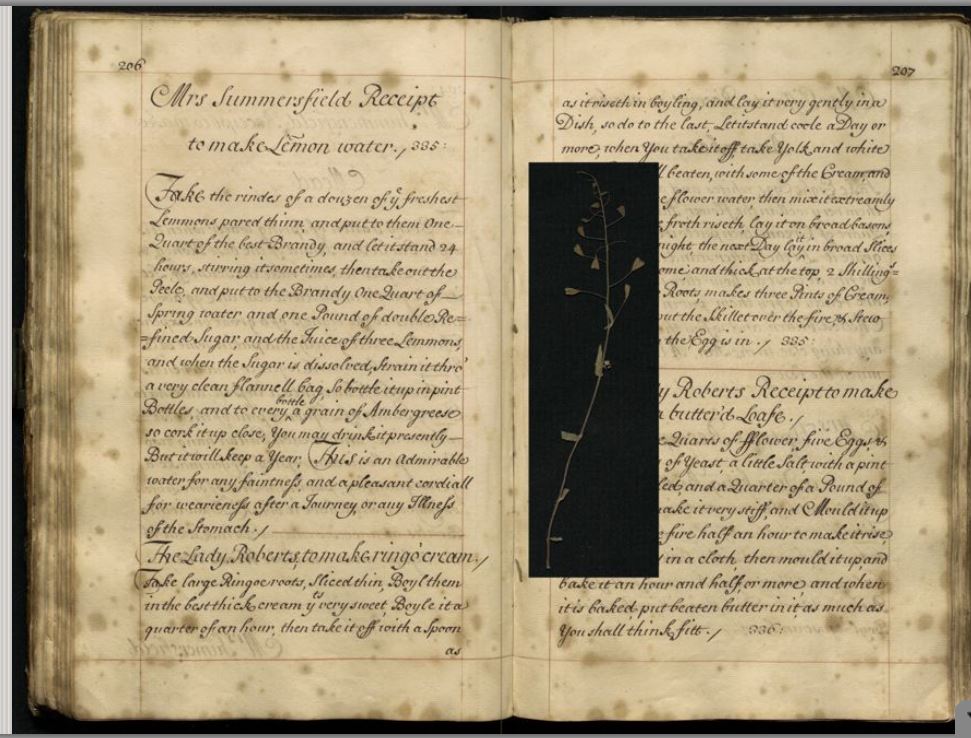 206
Mrs Summersfield Receipt
to make Lemon water. / 335:
Take the rindes of a douzen of ÿ freshest
Lemmons pared thinn, and put to them One
Quart of the best Brandy, and let it stand 24
hours, stirring it sometimes, then take out the
Peele, and put to the Brandy One Quart of
Spring water and one Pound of double Re=
=fined Sugar, and the Juice of three Lemmons,
and when the Sugar is dissolved, strain it thrô
a very clean flannell bag, So bottle it up in pint
Bottles, and to every bottle a grain of Ambergreese
so cork it up close, You may drink it presently
But it will keep a Year, This is an Admirable
water for any faintness, and a pleasant cordiall
for weariness after a Journey, or any Illness
of the Stomach. /
The Lady Roberts, to make ringo cream. /
Take large Ringoe roots, sliced thin, Boyl them
in the best thick cream yts very sweet, Boyle it a
quarter of an hour, then take it off with a Spoon
as
207
as it riseth in boyling, and lay it very gently in a
Dish, so do to the last, Let it stand coole a Day or
more, when You take it off, take Yolk and white
beaten, with some of the Cream, and
flower water, then mix it extreamly
froth riseth, lay it on broad basons,
night, the next Day lay it in broad Slices
and thick at the top, 2 Shilling's=
Roots makes three Pints of Cream,
the Skillet over the fire, & Stew
the Egg is in. / 335:
Roberts Receipt to make
a butter'd Loafe. /
Quarts of fflower, five Eggs &
of Yeast, a little Salt with a pint
and a Quarter of a Pound of
make it very stiff, and Mould it up
fire half an hour to make it rise,
in a cloth, then mould it up and
bake it an hour and half, or more, and when
it is baked, put beaten butter in it as much as
You shall think fitt. / 336: